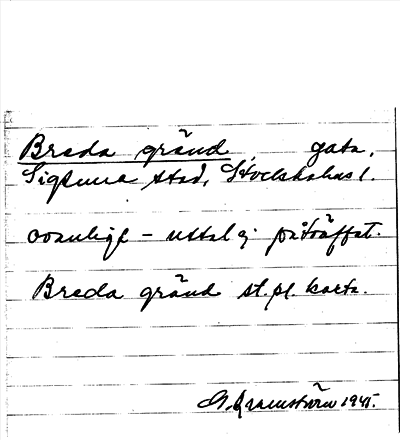 Breda gränd, gata.
Sigtuna stad, Stockholms l.
ovanligt - uttal ej påträffat.
Breda gränd st. pl. karta.
1945.